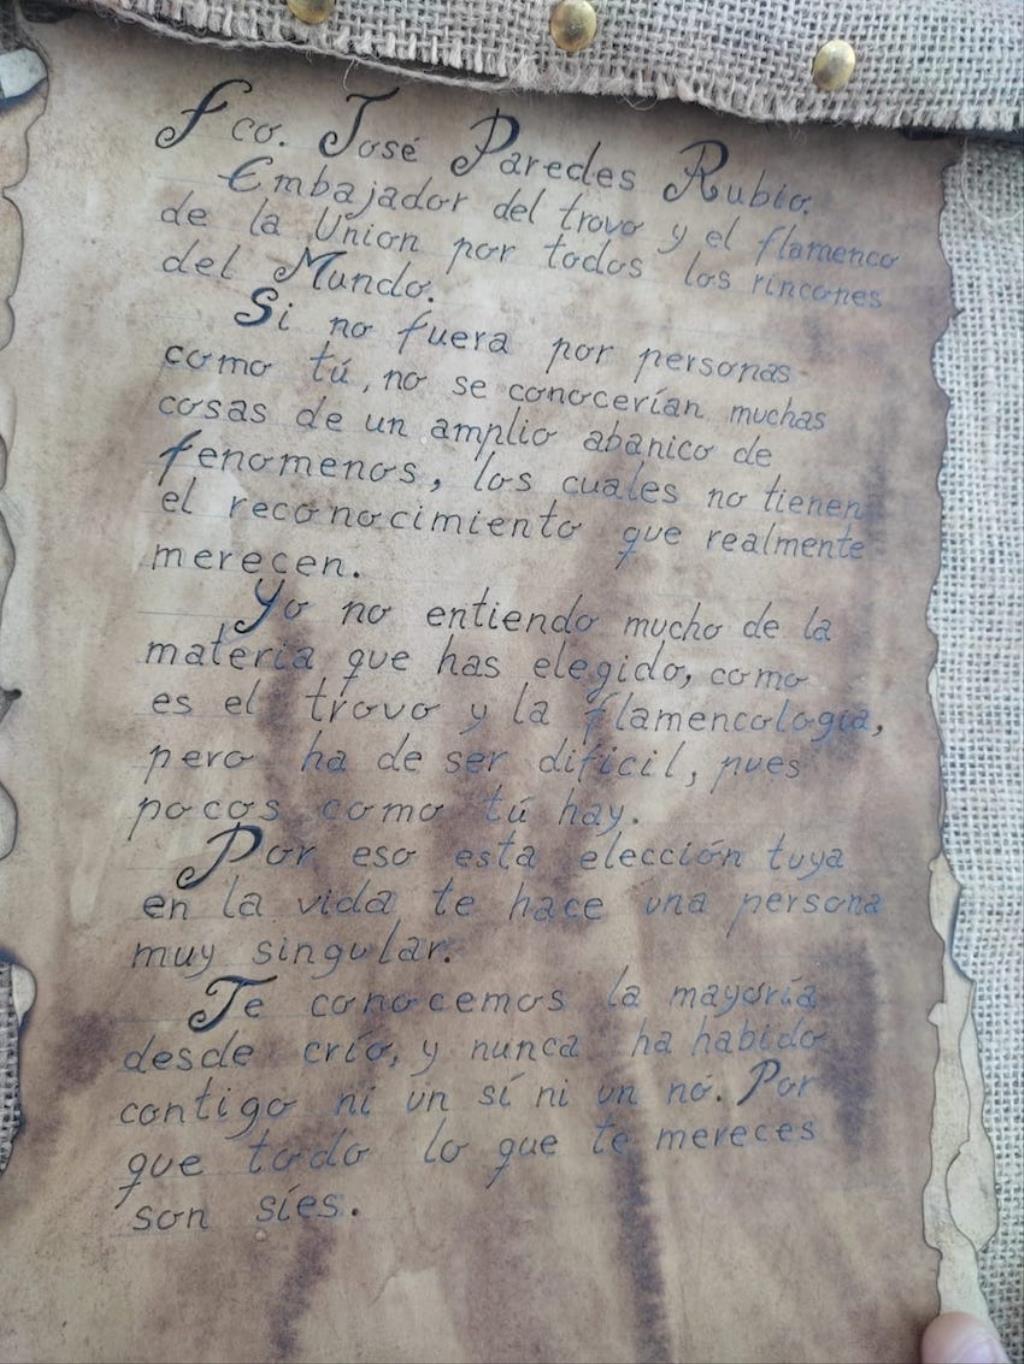 Fco. José Paredes Rubio.
Embajador del trovo y el flamenco
de la Union por todos los rincones
del Mundo.
Si no fuera por personas
como tú, no se conocerían muchas
cosas de un amplio abanico de
fenomenos, los cuales no tienen
el reconocimiento que realmente
merecen.
Yo no entiendo mucho de la
materia que has elegido, como
es el trovo y la flamencología,
pero ha de ser dificil, pues
pocos como tú hay.
Por eso esta elección tuya
en la vida te hace una persona
muy singular.
Te conocemos la mayoría
desde crío, y nunca ha habido
contigo ni un sí ni un nó. Por
que todo lo que te mereces
son síes.